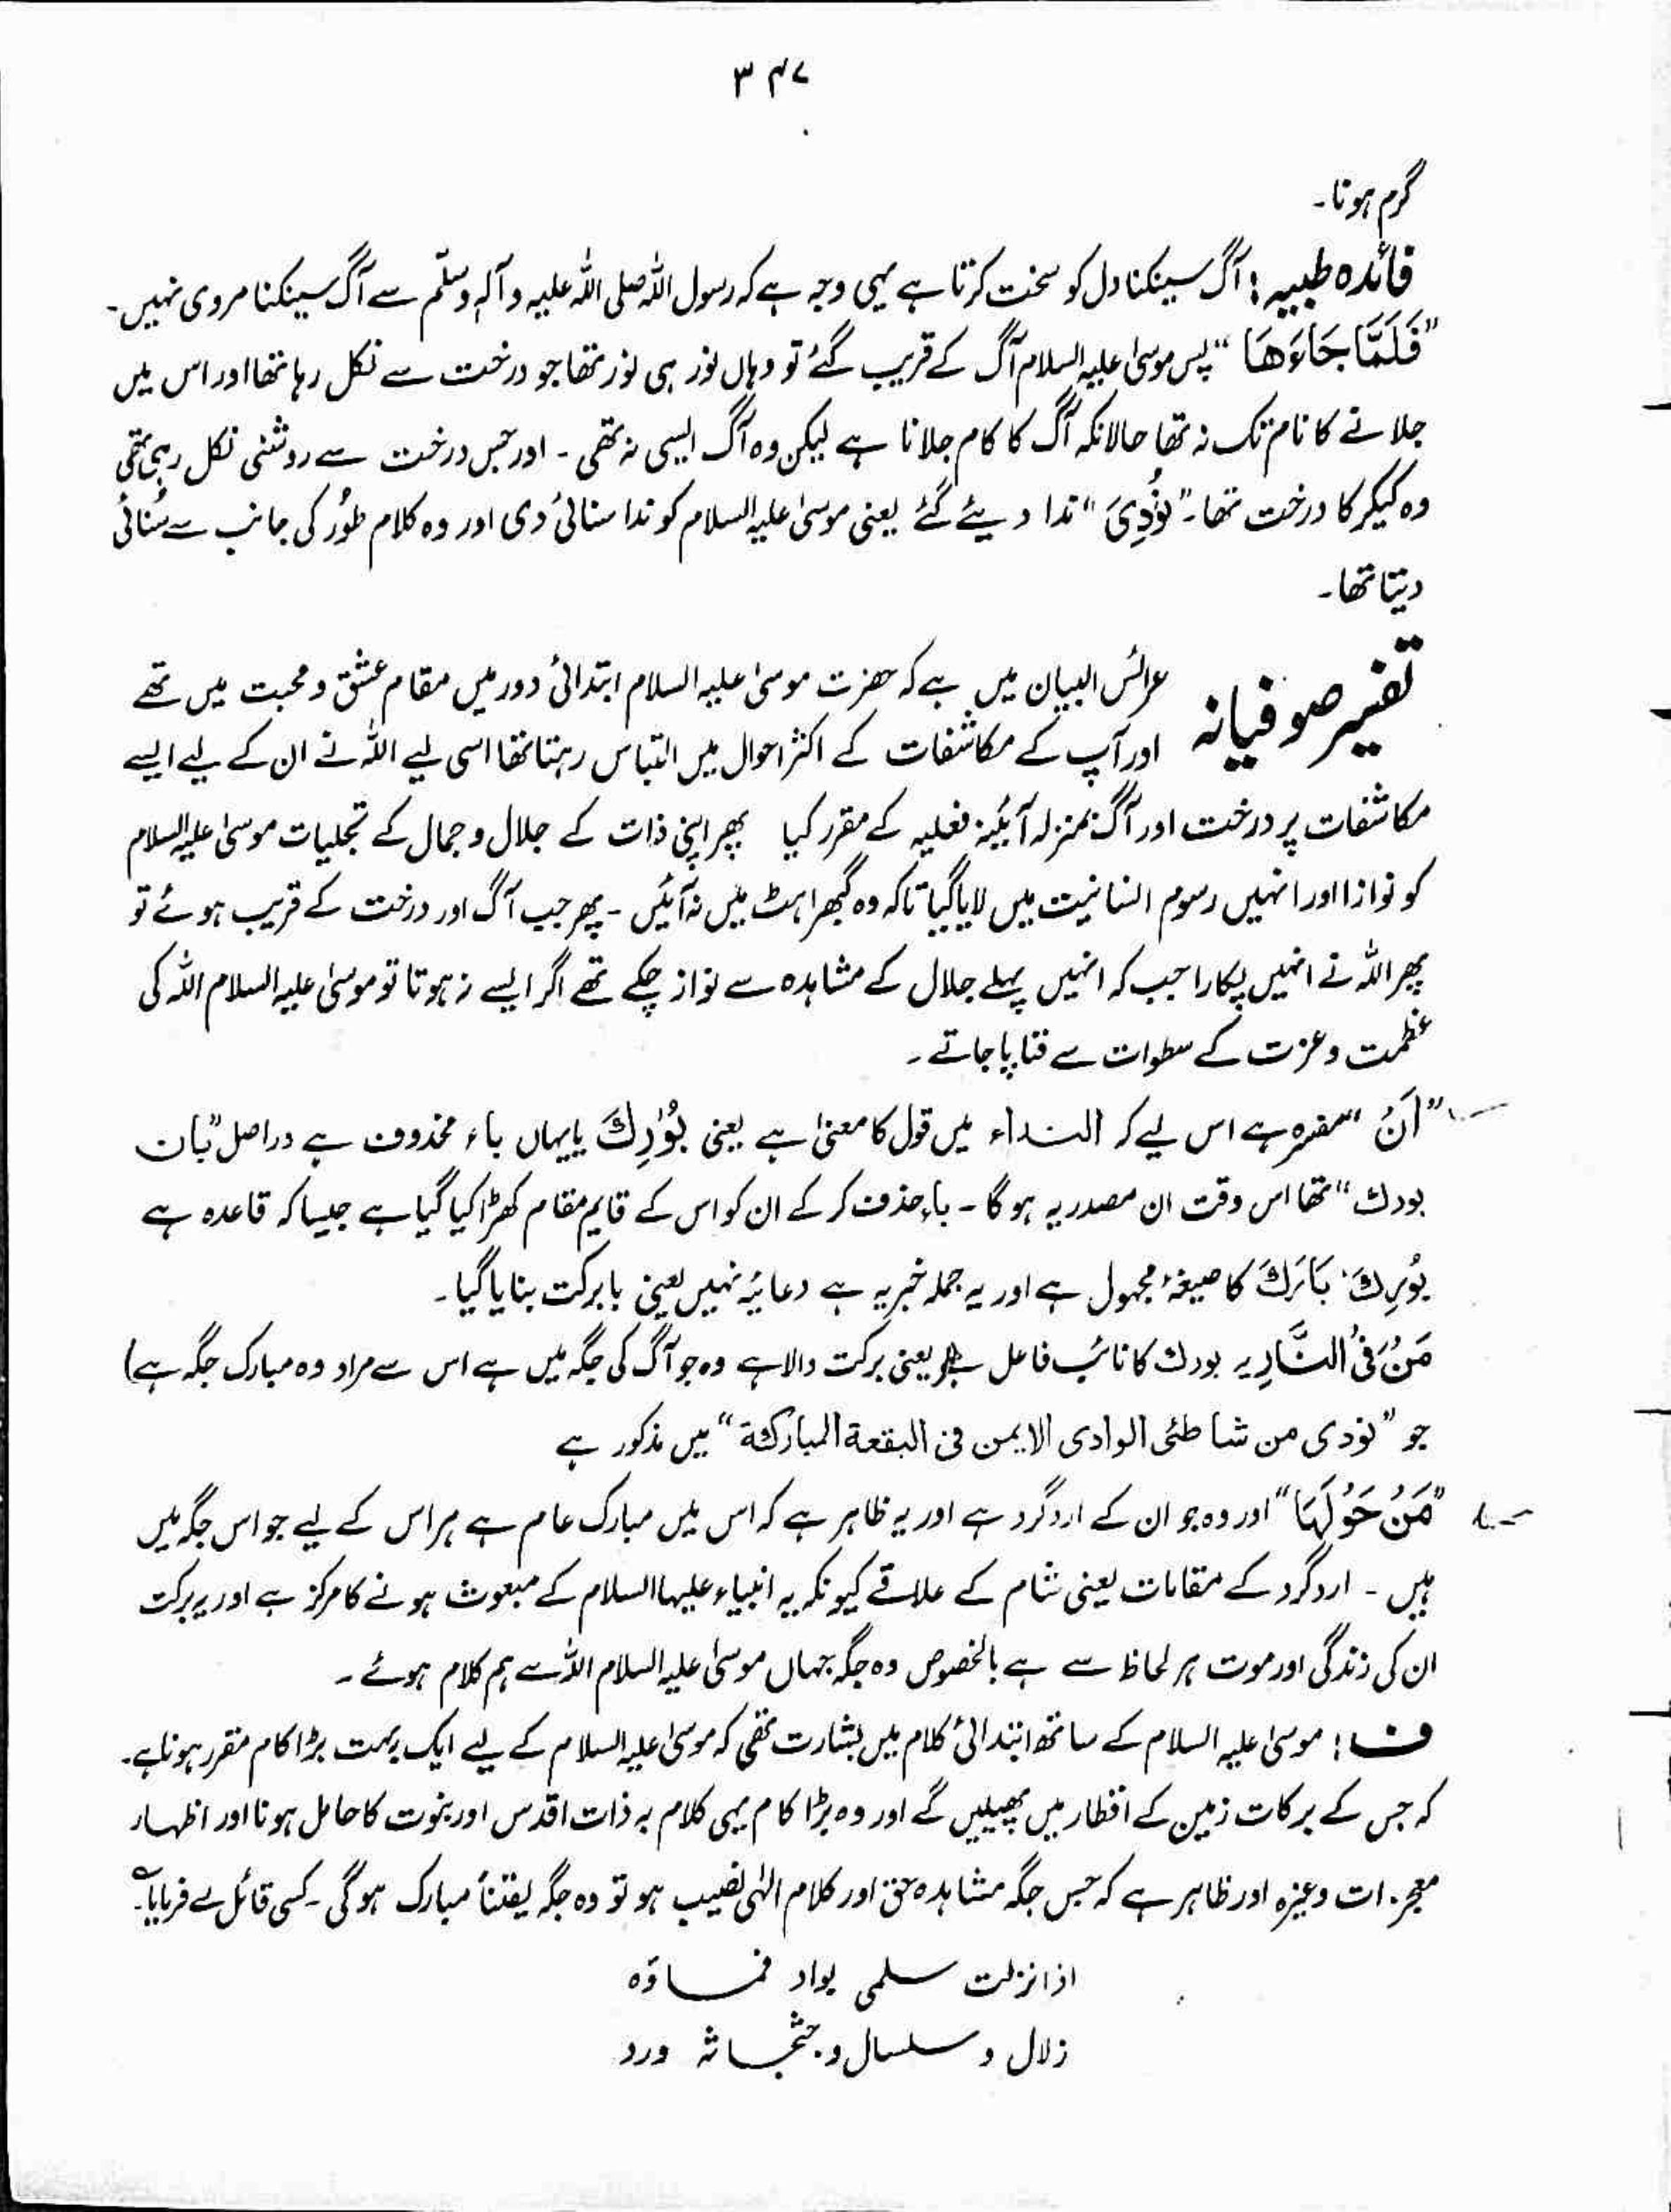 ۳۴۷
گرم ہونا۔
فائدہ طبیہ: آگ سینکنا دل کو سخت کرتا ہے یہی وجہ ہے کہ رسول اللہ صلی اللہ علیہ وآلہٖ وسلّم سے آگ سینکنا مروی نہیں۔
"فَلَمَّا جَاءَهَا" پس موسیٰ علیہ السلام آگ کے قریب گئے تو وہاں نور ہی نور تھا جو درخت سے نکل رہا تھا اور اس میں
جلانے کا نام تک نہ تھا حالانکہ آگ کا کام جلانا ہے لیکن وہ آگ ایسی نہ تھی۔ اور جس درخت سے روشنی نکل رہی تھی
وہ کیکر کا درخت تھا۔ "نُوْدِیَ" ندا دیئے گئے یعنی موسیٰ علیہ السلام کو ندا سنائی دی اور وہ کلام طُور کی جانب سے سُنائی
دیتا تھا۔
تفسیر صوفیانہ عرائس البیان میں ہے کہ حضرت موسیٰ علیہ السلام ابتدائی دور میں مقام عشق و محبت میں تھے
اور آپ کے مکاشفات کے اکثر احوال میں التباس رہتا تھا اسی لیے اللہ نے ان کے لیے ایسے
مکاشفات پر درخت اور آگ بمنزلہ آئینہ فعلیہ کے مقرر کیا پھر اپنی ذات کے جلال و جمال کے تجلیات موسیٰ علیہ السلام
کو نوازا اور انہیں رسوم انسانیت میں لایا گیا تاکہ وہ گھبراہٹ میں نہ آئیں۔ پھر جب آگ اور درخت کے قریب ہوئے تو
پھر اللہ نے انہیں پکارا جب کہ انہیں پہلے جلال کے مشاہدہ سے نواز چکے تھے اگر ایسے نہ ہوتا تو موسیٰ علیہ السلام اللہ کی
عظمت و عزت کے سطوات سے فنا پا جاتے۔
"اَنْ" مفسرہ ہے اس لیے کہ النداء میں قول کا معنیٰ ہے یعنی بُوْرِكَ یا یہاں باء محذوف ہے دراصل "بان
بورك" تھا اس وقت ان مصدریہ ہوگا۔ باء حذف کر کے ان کو اس کے قایم مقام کھڑا کیا گیا ہے جیسا کہ قاعدہ ہے
بُوْرِكَ، بَارَكَ کا صیغۂ مجہول ہے اور یہ جملہ خبریہ ہے دعائیہ نہیں یعنی بابرکت بنایا گیا۔
مَنْ فِی النَّارِ یہ بورك کا نائب فاعل ہے یعنی برکت والا ہے وہ جو آگ کی جگہ میں ہے اس سے مراد وہ مبارک جگہ ہے)
جو "نودی من شاطئی الوادی الایمن فی البقعة المبارکة" میں مذکور ہے
"مَنْ حَوْلَهَا" اور وہ جو ان کے اردگرد ہے اور یہ ظاہر ہے کہ اس میں مبارک عام ہے ہر اس کے لیے جو اس جگہ میں
ہیں۔ اردگرد کے مقامات یعنی شام کے علاقے کیونکہ یہ انبیاء علیہا السلام کے مبعوث ہونے کا مرکز ہے اور یہ برکت
ان کی زندگی اور موت ہر لحاظ سے ہے بالخصوص وہ جگہ جہاں موسیٰ علیہ السلام اللہ سے ہم کلام ہوئے۔
ف: موسیٰ علیہ السلام کے ساتھ ابتدائی کلام میں بشارت تھی کہ موسیٰ علیہ السلام کے لیے ایک بہت بڑا کام مقرر ہونا ہے۔
کہ جس کے برکات زمین کے اقطار میں پھیلیں گے اور وہ بڑا کام یہی کلام بہ ذات اقدس اور نبوت کا حامل ہونا اور اظہار
معجزات وغیرہ اور ظاہر ہے کہ جس جگہ مشاہدہ حق اور کلام الٰہی نصیب ہو تو وہ جگہ یقیناً مبارک ہوگی۔ کسی قائل نے فرمایا۔
اذا نزلت سلمی بواد فماؤہ
زلال و سلسال و جثجاثہ ورد